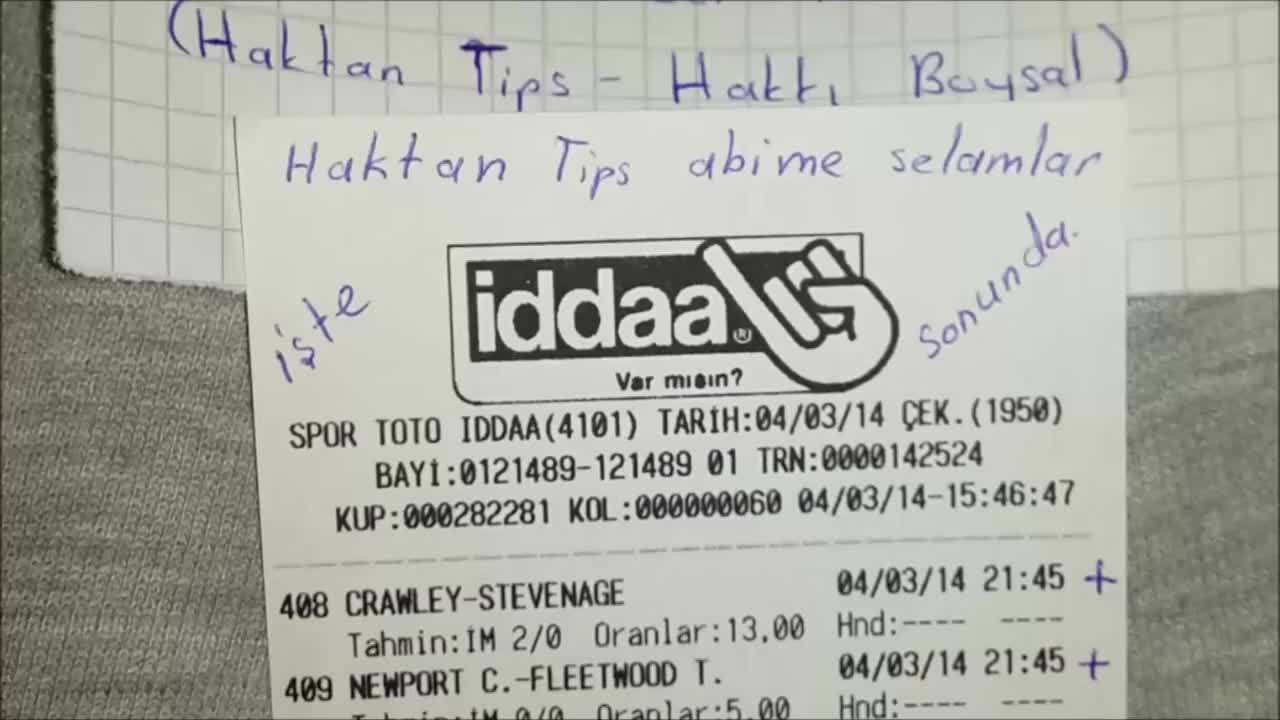 (Haktan Tips - Hakkı Baysal)
Haktan Tips abime selamlar
işte
sonunda.
iddaa®
Var mısın?
SPOR TOTO IDDAA(4101) TARİH:04/03/14 ÇEK.(1950)
BAYİ:0121489-121489 01 TRN:0000142524
KUP:000282281 KOL:000000060 04/03/14-15:46:47
408 CRAWLEY-STEVENAGE 04/03/14 21:45 +
Tahmin:İM 2/0 Oranlar:13,00 Hnd:---- ----
409 NEWPORT C.-FLEETWOOD T. 04/03/14 21:45 +
Tahmin:İM 0/0 Oranlar:5,00 Hnd:---- ----